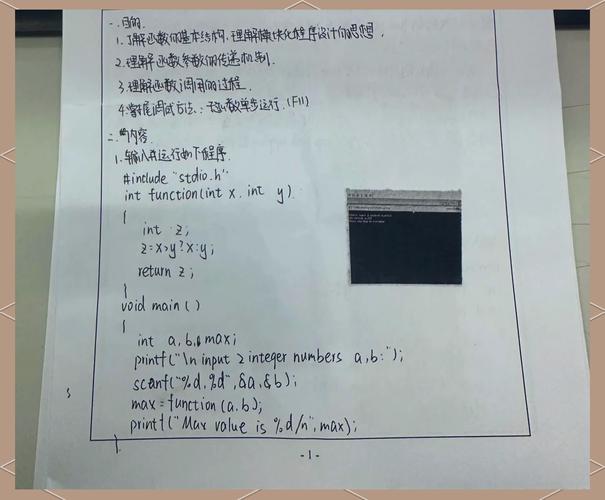 一.目的
1.了解函数的基本结构,理解模块化程序设计的思想.
2.理解函数参数的传递机制.
3.理解函数调用的过程.
4.掌握调试方法:函数单步运行.(F11)
二.内容.
1.输入并运行如下程序.
#include "stdio.h"
int function(int x, int y)
{
int z;
z=x>y?x:y;
return z;
}
void main()
{
int a,b,max;
printf("\n input 2 integer numbers a,b:");
scanf("%d,%d",&a,&b);
max=function(a,b);
printf("Max value is %d/n",max);
}
-1-